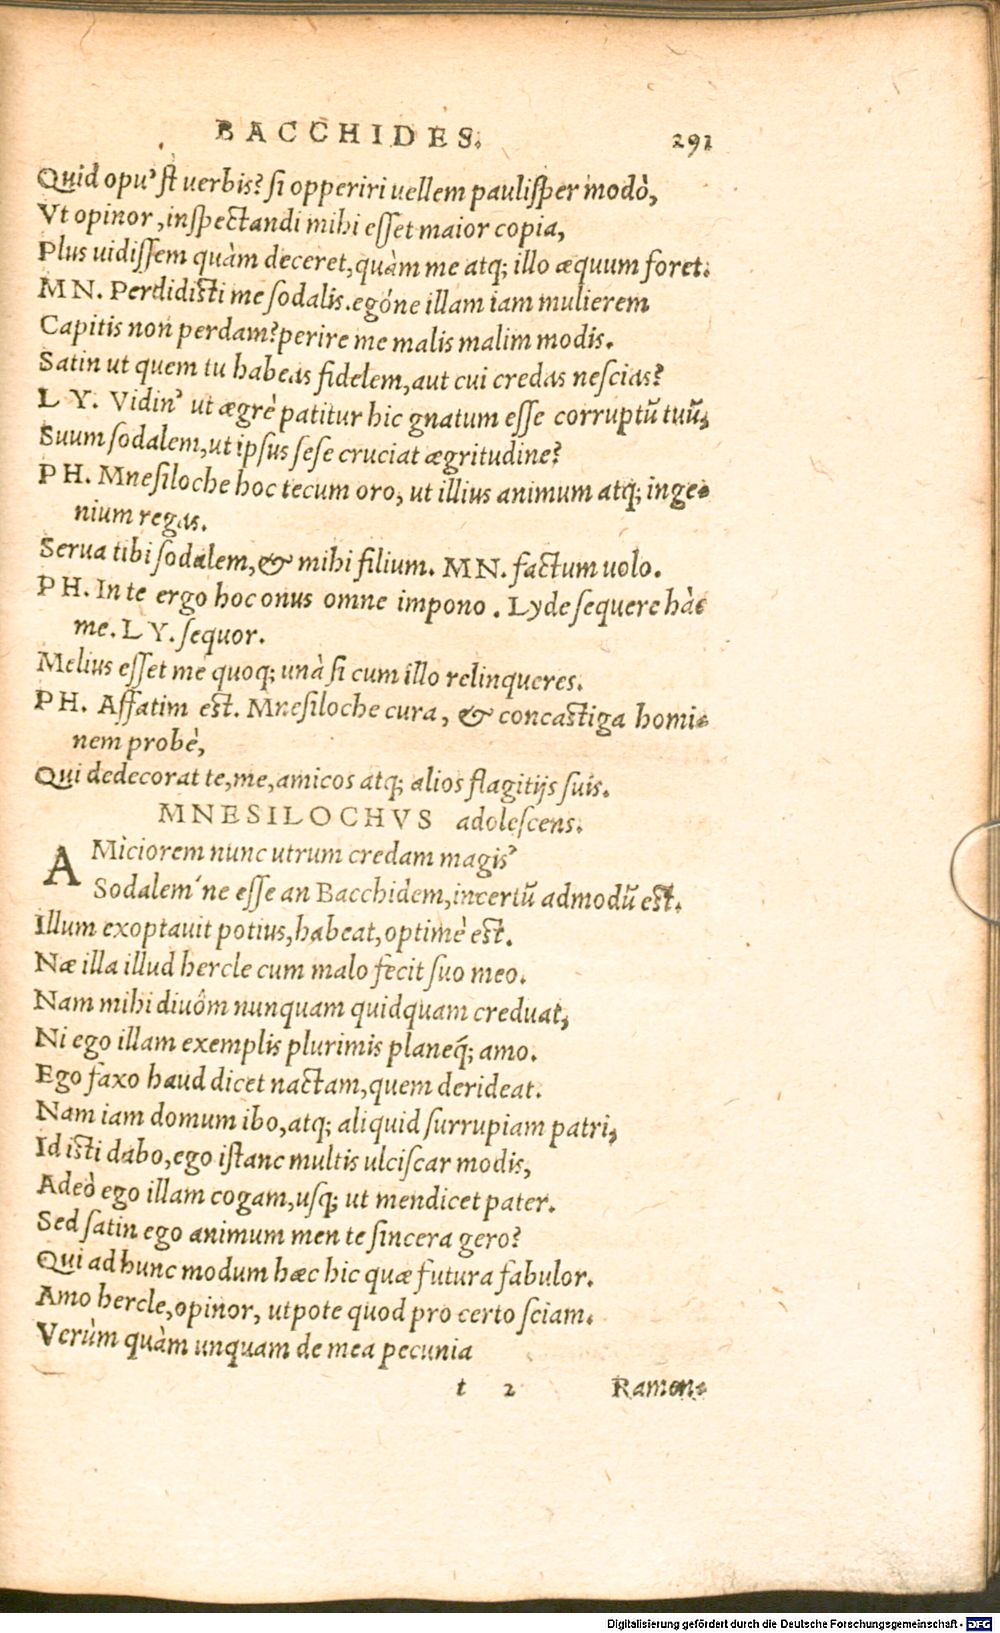 BACCHIDES. 291
Quid opu' st uerbis? si opperiri uellem paulisper modò,
Vt opinor, inspectandi mihi esset maior copia,
Plus uidissem quàm deceret, quàm me atq; illo æquum foret.
MN. Perdidisti me sodalis. egóne illam iam mulierem
Capitis non perdam? perire me malis malim modis.
Satin ut quem tu habeas fidelem, aut cui credas nescias?
LY. Vidin' ut ægrè patitur hic gnatum esse corruptũ tuũ,
Suum sodalem, ut ipsus sese cruciat ægritudine?
PH. Mnesiloche hoc tecum oro, ut illius animum atq; inge-
nium regas.
Serua tibi sodalem, & mihi filium. MN. factum uolo.
PH. In te ergo hoc onus omne impono. Lyde sequere hàc
me. LY. sequor.
Melius esset me quoq; unà si cum illo relinqueres.
PH. Affatim est. Mnesiloche cura, & concastiga homi-
nem probè,
Qui dedecorat te, me, amicos atq; alios flagitijs suis.
MNESILOCHVS adolescens.
AMiciorem nunc utrum credam magis'
Sodalem´ne esse an Bacchidem, incertũ admodũ est.
Illum exoptauit potius, habeat, optimè est.
Næ illa illud hercle cum malo fecit suo meo.
Nam mihi diuôm nunquam quidquam creduat,
Ni ego illam exemplis plurimis planeq́; amo.
Ego faxo haud dicet nactam, quem derideat.
Nam iam domum ibo, atq; aliquid surrupiam patri,
Id isti dabo, ego istanc multis ulciscar modis,
Adeò ego illam cogam, usq; ut mendicet pater.
Sed satin ego animum men te sincera gero?
Qui ad hunc modum hæc hic quæ futura fabulor.
Amo hercle, opinor, utpote quod pro certo sciam.
Verùm quàm unquam de mea pecunia
t 2 Ramen-
Digitalisierung gefördert durch die Deutsche Forschungsgemeinschaft - DFG